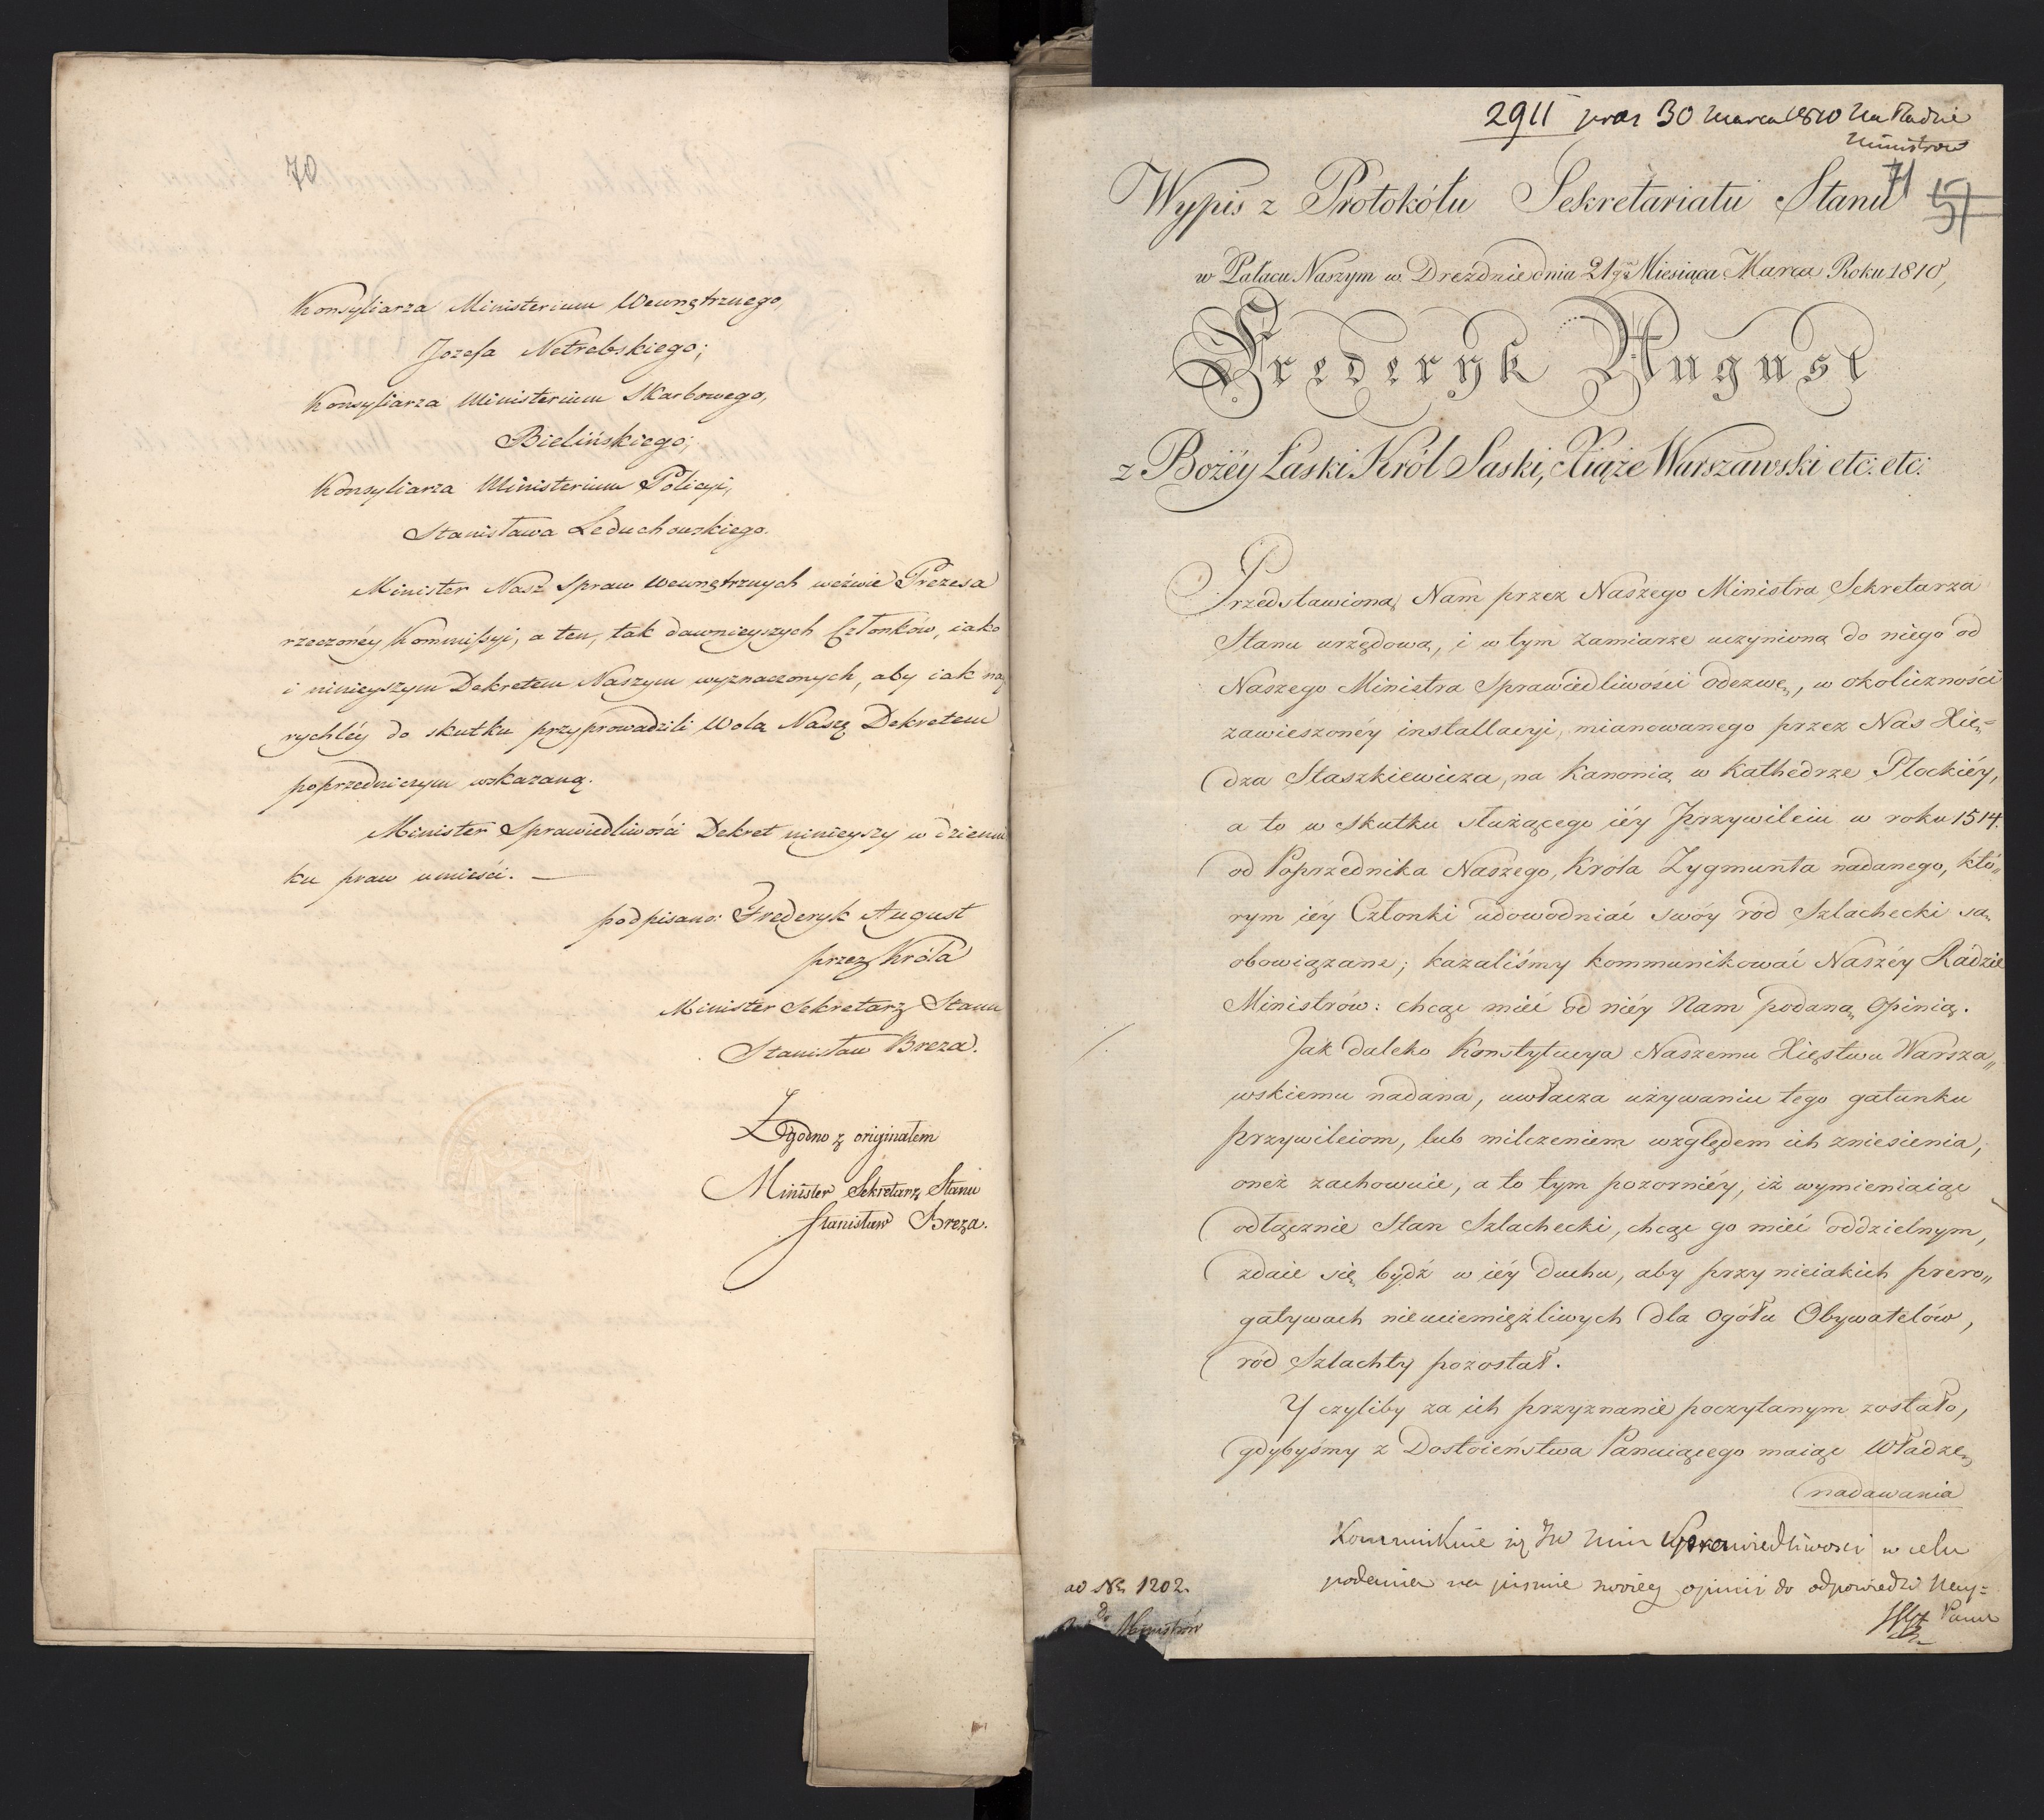 70
Konsyliarza Ministerium Wewnętrznego,
Jozefa Netrebskiego;
Konsyliarza Ministerium Skarbowego,
Bielińskiego;
Konsyliarza Ministerium Policyi,
Stanisława Leduchowskiego.
Minister Nasz Spraw Wewnętrznych wezwie Prezesa
rzeczonéy Kommissyi, a ten, tak dawnieyszych Członków, iako
i ninieyszym Dekretem Naszym wyznaczonych, aby iak nay
rychléy do skutku przyprowadzili Wolą Naszę Dekretem
poprzedniczym wskazaną.
Minister Sprawiedliwości Dekret ninieyszy w dzienni
ku praw umieści. —
podpisano: Frederyk August
przez Króla
Minister Sekretarz Stanu
Stanisław Breza.
Zgodno z originałem
Minister Sekretarz Stanu
Stanisław Breza.
2911 praes 30 Marca 1810 Na Radzie
Ministrow
71
Wypis z Protokółu Sekretariatu Stanu 57
w Pałacu Naszym w Dreźdnie dnia 21go Miesiąca Marca Roku 1810,
Frederyk August
z Bożéy Łaski Król Saski, Xiąże Warszawski etc: etc:
Przedstawioną Nam przez Naszego Ministra Sekretarza
Stanu urzędową, i w tym zamiarze uczynioną do niego od
Naszego Ministra Sprawiedliwości odezwę, w okoliczności
zawieszonéy installacyi, mianowanego przez Nas Xię=
dza Staszkiewicza, na Kanonią w Kathedrze Płockiéy,
a to w skutku służącego iéy Przywileiu w roku 1514.
od Poprzednika Naszego, Króla Zygmunta nadanego, któ„
rym iéy Członki udowodniać swóy ród Szlachecki są
obowiązane; kazaliśmy kommunikować Naszéy Radzie
Ministrów: chcąc mieć od niéy Nam podaną Opinią.
Jak daleko Konstytucya Naszemu Xięstwu Warsza„
wskiemu nadana, uwłacza używaniu tego gatunku
przywileiom, lub milczeniem względem ich zniesienia,
oneż zachowuie, a to tym pozorniéy, iż wymieniaiąc
odłącznie Stan Szlachecki, chcąc go mieć oddzielnym,
zdaie się bydź w iéy duchu, aby przy nieiakich prero„
gatywach nieuciemiężliwych dla Ogółu Obywatelów,
ród Szlachty pozostał.
Y czyliby za ich przyznanie poczytanym zostało,
gdybyśmy z Dostoieństwa Panuiącego maiąc Władzę
nadawania
Kommunikuie się JW Min Sprawiedliwosci w celu
podania na pismie swoiey opinii do odpowiedzi Nay=
Panu
ad No 1202.
do
Ministrów